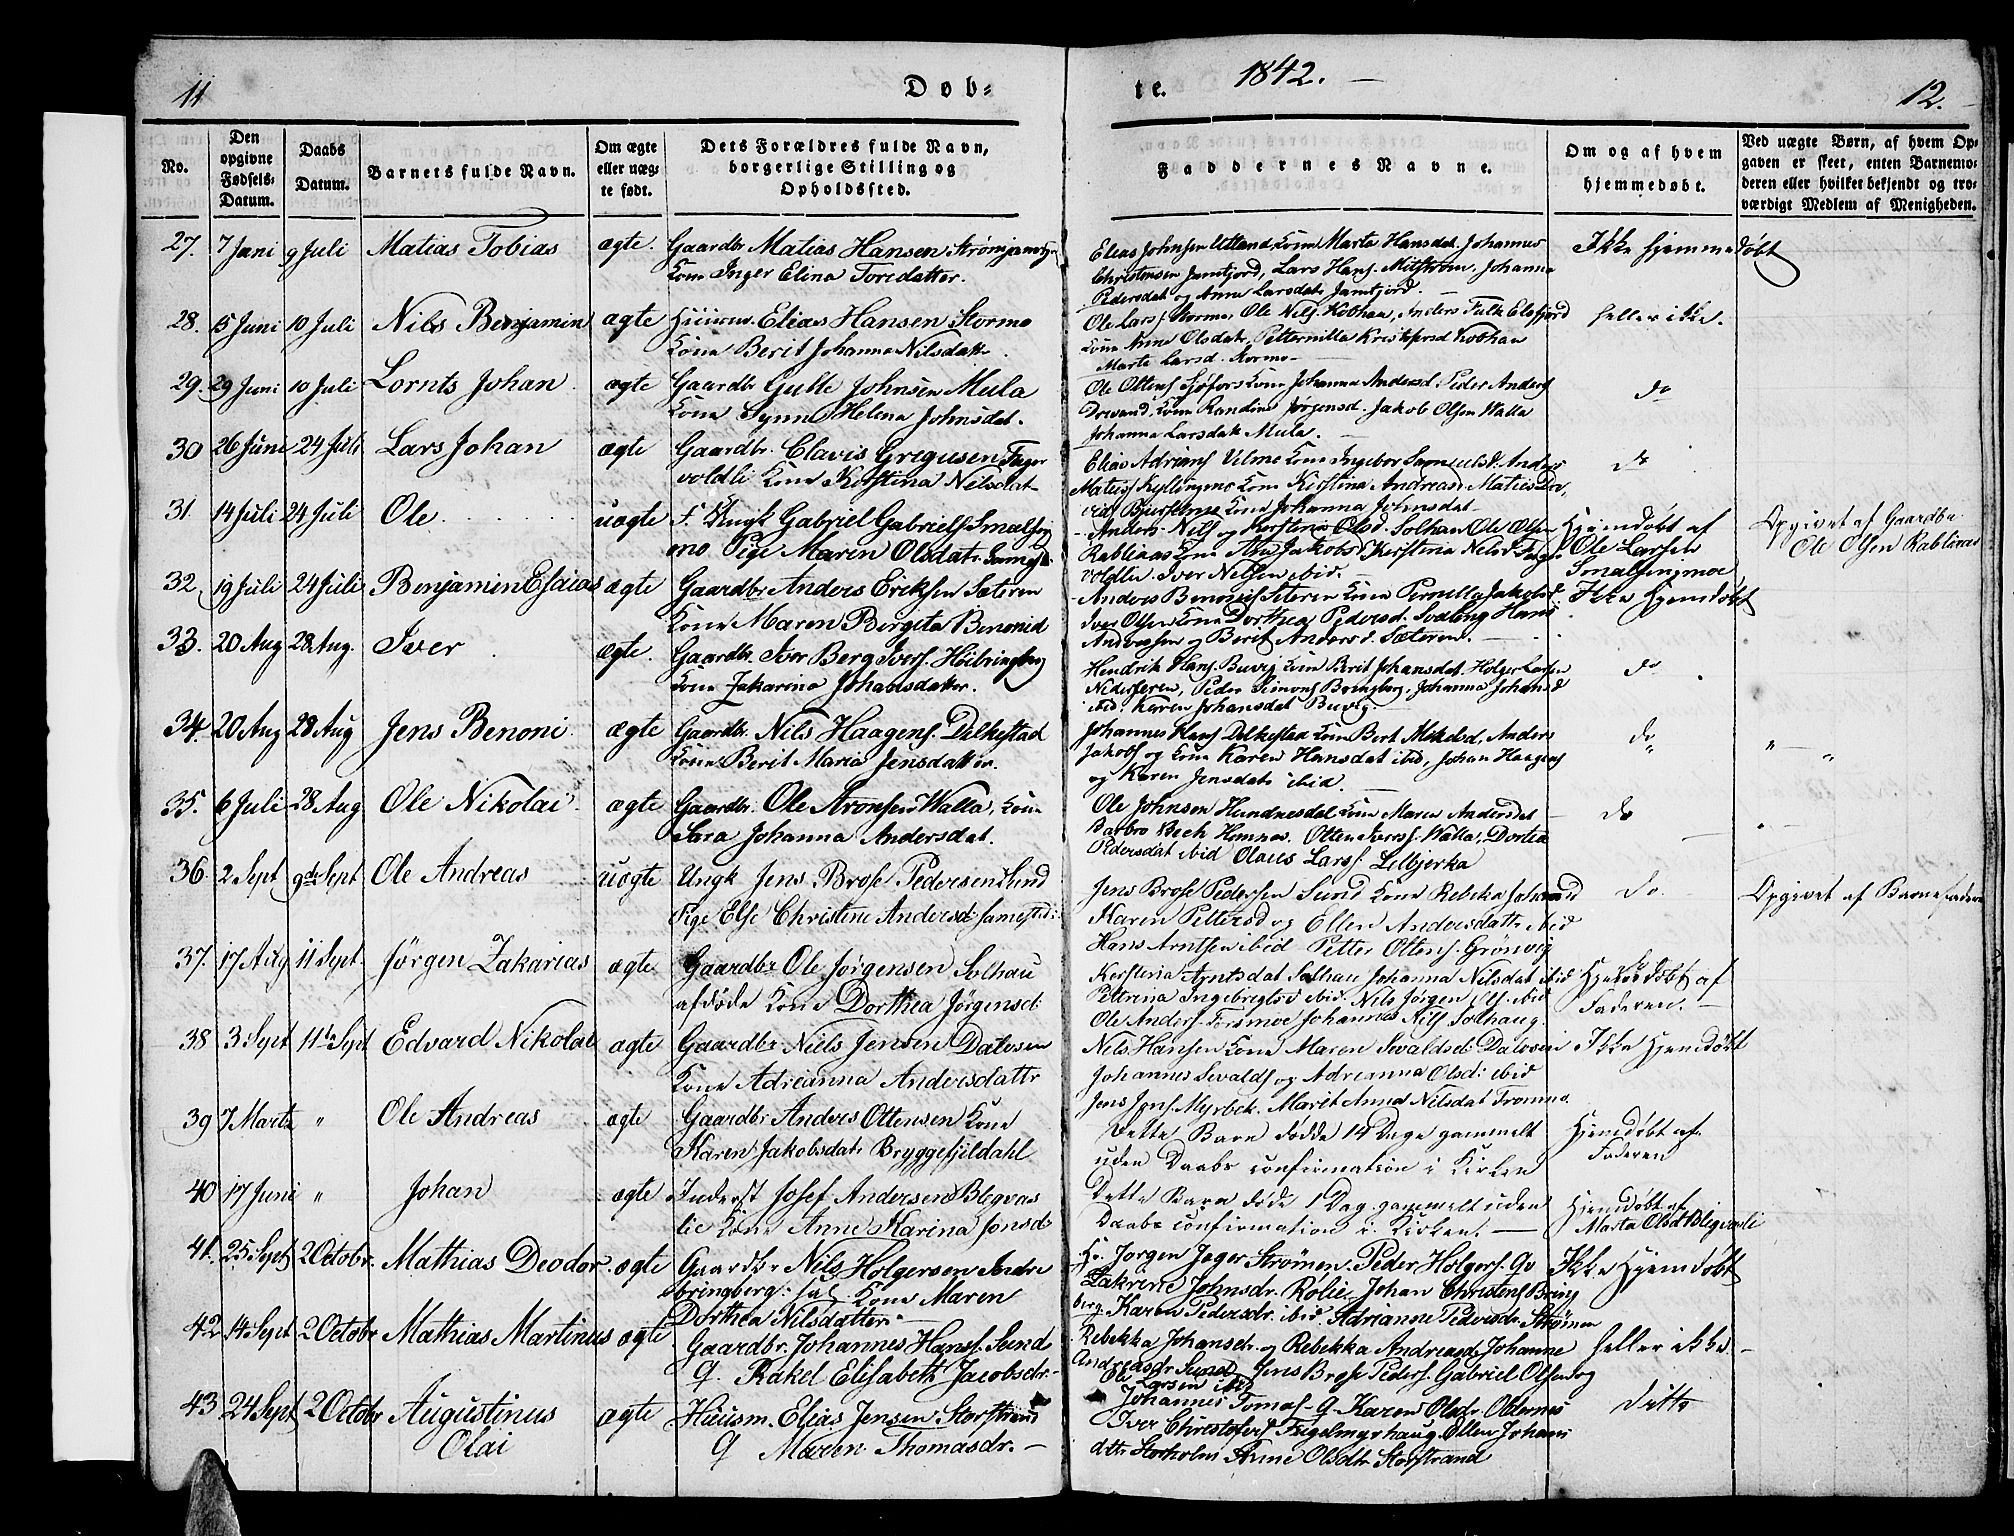 11
Døb-
te.
1842. —
12.
No.
Den opgivne Fødsels-Datum.
Daabs Datum.
Barnets fulde Navn.
Om ægte eller uæg-te født.
Dets Forældres fulde Navn, borgerlige Stilling og Opholdsfted.
Faddernes Navne.
Om og af hvem hjemmedøbt.
Ved uægte Børn, af hvem Op-gaven er skeet, enten Barnemo-deren eller hvilket bekjendt og tro-værdigt Medlem af Menigheden.
27. 7 Juni 9 Juli Matias Tobias ægte. Gaardbr Matias Hansen
Kone Inger Elina Toredatter.
Elias Johnsen Utland Kone Marta Hansdat. Johannes
Christensen Jamtjord, Lars Hans. Mitstrøm, Johanna
Pedersdat og Anne Larsdatr Jamtjord.
Ikke hjemmedøbt
28. 15 Juni 10 Juli Nils Benjamin ægte Huusm. Elias Hansen Stormo
Kone Berit Johanna Nilsdatr.
Ole Lars. Stormo, Ole Nils. Kobhau, Anders Falk Elsfjord
Kone Anne Olsdatr, Petternilla Kristofersd Kobhau
Marte Larsd. Stormo
heller ikke.
29. 29 Juni 10 Juli Lornts Johan ægte Gaardbr Gulle Johnsen Mula
Kone Synne Helena Johnsdat.
Ole Oltens Sjøfors Kone Johanna Andersd. Peder Anders
Drevand, Kone Randine Jørgensd. Jakob Olsen Walla
Johanna Larsdatr Mula.
do
30 26 Juni 24 Juli Lars Johan ægte Gaardbr. Clavis Gregusen Fager
voldli Kone Kerstina Nilsdat
Elias Adrians Vilmo Kone Ingebor Samuelsd. Anders
Matiss Kyllingmo Kone Kirstina Andreasd.
Kone Johanna Johnsdat
do
31. 14 Juli 24 Juli Ole uægte F. Ungk Gabriel Gabriels Smalseng
mo Pige Maren Olsdatr.
Anders Nils og Kerstina Olsd. Solhau Ole Olsen
Rablinas Kone Ane Jakobsd Kerstina Nilsd Fager
voldlie. Iver Nilsen ibid.
Hjemdøbt af
Ole Larsen
Smalsengmoe
Opgivet af Gaardbr
Ole Olsen Rablinas
32. 19 Juli 24 Juli Benjamin Esaias ægte Gaardbr Anders Eriksen Sæteren
Kone Maren Bergeta Benonid
Anders Benonis Sæteren Kone Pernella Jakobsd
Iver Olsen Kone Dorthea Pedersd. Svaleng Hans
Andreasen og Berit Andersd. Sæteren.
Ikke Hjemdøbt
33. 20 Aug 28 Aug. Iver ægte. Gaardbr. Iver Berg Ivers. Høibringberg
Kone Zakarina Johansdatter.
Hendrik Hans. Buvig Kone Berit Johansdat. Holger Larsen
Nedersteren, Peder Simons Bringberg, Johanna Johansd
ibid. Karen Johansdat Buvig
do
34. 20 Aug 28 Aug Jens Benoni ægte Gaardbr. Nils Haagens. Dilkestad
Kone Berit Maria Jensdatter.
Johannes Hans Dilkestad Kone Berit Mikelsd, Anders
Jakobs og Kone Karen Hansdat ibid, Johan Haagens
og Karen Jensdatr ibid.
do
35. 6 Juli 28 Aug Ole Nikolai ægte Gaardbr. Ole Aronsen Walla, Kone
Sara Johanna Andersdat.
Ole Johnsen Hundnesdal Kone Maren Andersdat
Barbro Bech Hemnæs. Olten Ivers. Walla, Dortea
Pedersdat ibid Olaus Lars. Lilbjerka
do
36 2 Sept 9de Sept Ole Andreas uægte Ungk Jens Brose Pedersen Sund
Pige Else Christine Andersd: samested:
Jens Brose Pedersen Sund Kone Rebeka Johansd
Karen Pettersd og Ellen Andersdatr ibid
Hans Arntsen ibid Petter Oltens. Grønvig
do.
Opgivet af Barnefaderen
37. 17 Aug 11 Sept. Jørgen Zakarias ægte Gaardbr Ole Jørgensen Solhau
afdøde Kone Dorthea Jørgensd:
Kersteria Arntsdat Solhau Johanna Nilsdat ibid
Petrina Ingebrigtsd ibid. Nils Jørgen Ols. ibid
Ole Anders. Forsmoe Johannes Nils Solhaug.
Hjemdøbt af
Faderen.
38 3 Sept 11te Sept Edvard Nikolai ægte Gaardbr Niels Jensen Dalosen
Kone Adreanna Andersdattr
Nils Hansen Kone Maren Sivaldsd: Dalosen
Johannes Sivalds og Adreanna Olsd: ibid
Jens Jens. Myrbek. Marit Anna Nilsdat Tromme
Ikke Hjemdøbt
39 7 Marts " Ole Andreas ægte Gaardbr Anders Ottensen Kone
Karen Jakobsdatr Bryggefjeldahl
Dette Barn døde 14 Dage gammelt
uden Daabs confirmation i Kirken
Hjemdøbt af
Faderen
40 17 Juni " Johan ægte Inderst Josef Andersen Blegvas
lie Kone Anne Karina Jonsd:
Dette Barn døde 1 Dag gammelt uden
Daabs confirmation i Kirken.
Hjemdøbt af
Marta Olsd
41. 25 Sept 2 Octobr. Mathias Deodor ægte Gaardbr Nils Holgersen Indre
bringberg: Kone Maren
Dorthea Nilsdatter
Hr. Jørgen Jeger Strømen. Peder Holgers. Qv
Zakrine Johnsdr. Rølie, Johan Christens Bring
berg. Karen Pedersdr. ibid. Adrianne Pedersdr. Strømen
Ikke Hjemdøbt
42 14 Sept 2 Octobr Mathias Martinus ægte Gaardbr. Johannes Hans. Sund
Q. Rakel Elisabeth Jacobsdr.
Rebekka Johansdr. og Rebekka Andreasdr, Johanne
Andreasdr Sund, Jens Brose Peders. Gabriel Olsen og
Ole Larsen ibid
heller ikke.
43 24 Sept 2 Octobr Augustinus
Olai ægte Huusm. Elias Jensen Storstrand
Q Maren Thomasdr.
Johannes Tomas. Q. Karen Olsdr. Oldernes
Iver Christofers Fugelmyrhaug, Ellen Johans
dttr Storholm Anne Olsdtr Storstrand
ditto